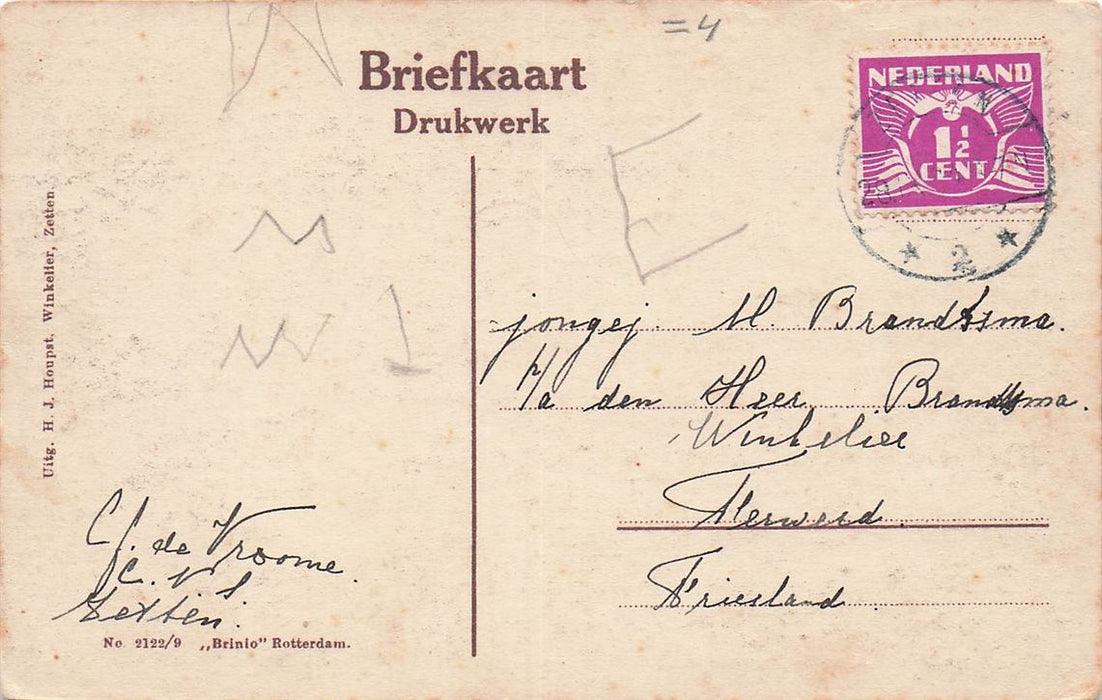 =4
Briefkaart
Drukwerk
NEDERLAND
1½
CENT
2
Uitg. H. J. Houpst. Winkelier, Zetten
E
jongej. M. Brandsma.
p/a den Heer Brandsma.
Winkelier
Ferwerd.
Friesland.
C. J. de Vroome.
C. N. S.
Zetten.
No 2122/9 „Brinio" Rotterdam.